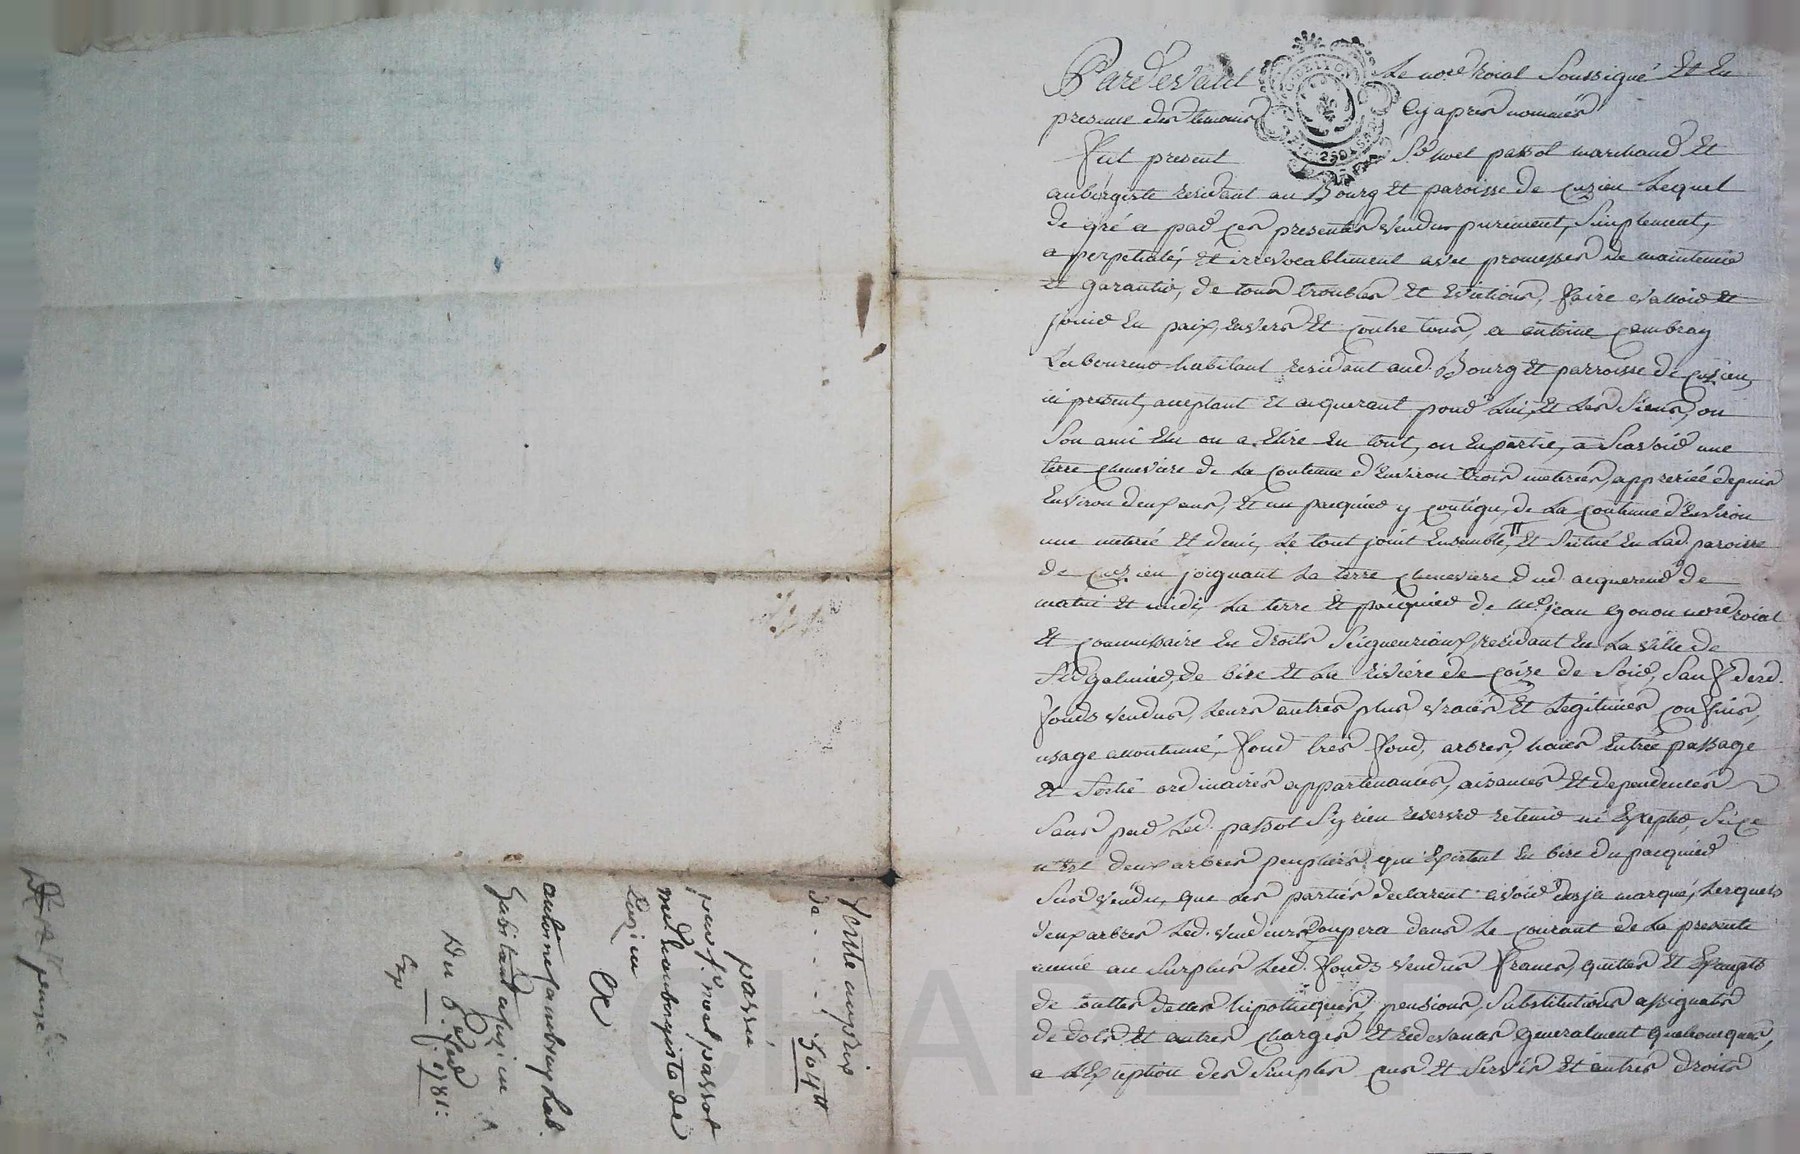 Pardevant Le nore Roial Soussigné Et En
presence des temoins Cy apres nommés
Fut present Sr noel passot marchand Et
aubergiste residant au Bourg Et paroisse de Cuzieu Lequel
de gré a par ces presentes vendu purement, Simplement,
a perpetuité, et irrevocablement avec promesses de maintenir
et garantir, de tous troubles et Evictions, faire valloir et
jouir En paix, Envers Et Contre tous, a antoine Cambray
Laboureur habitant residant aud. Bourg Et parroisse de Cuzieu,
ici present, acceptant Et aquerant pour Lui, Et Les Siens, ou
Son ami Elu ou a Elire En tout, ou En partie, a Scavoir une
terre Cheneviere de La Contenue d'Environ trois meterées, depuis
Environ deux ans, Et un pacquier y Contigu, de La Contenue d'Environ
une meteré Et demi, Le tout joint Ensemble, Et Situé En Lad. paroisse
de Cuzieu joignant La terre Cheneviere dud. acquereur de
matin Et midi, La terre Et pacquier de me jean gonon nore Roial
Et Commissaire En droits Seigneuriaux residant En La ville de
St Galmier, de bize Et La Riviere de Coize de Soir, Sauf desd.
fonds vendus, Leurs autres plus vraies Et Legitimes Confins,
usage accoutumé, fond tres fond, arbres, haies Entrée passage
Et Sortie ordinaires appartenances, aisances Et dependences
Sans par Led. passot S'y rien reserver retenir ni Excepter, Si ce
n'est deux arbres peupliers qui Existent En bize du pacquier
Sus vendu, que Les parties declarent avoir desja marqué, Lesquels
deux arbres Led. vendeur Coupera dans Le Courant de La presente
année au Surplus Lesd. fonds vendus francs, quittes et Exempts
de dettes hipotheques, pensions, Substitutions assignats
de dots Et autres Charges Et Redevances generalment quelconques,
a L'Exception des Simples Cens Et Servis Et autres droits
Vente au prix
de . . . . 504tt
passée
par sr. noel passot
md. Et aubergiste de
Cuzieu
a
antoine Cambray Lab.
habitant a Cuzieu
Du 8. avril 1781:
Exp